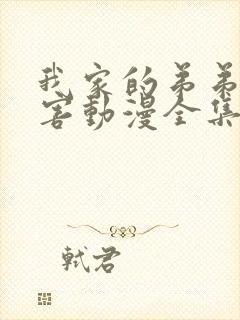 我家的弟弟
害動漫全集
軾君